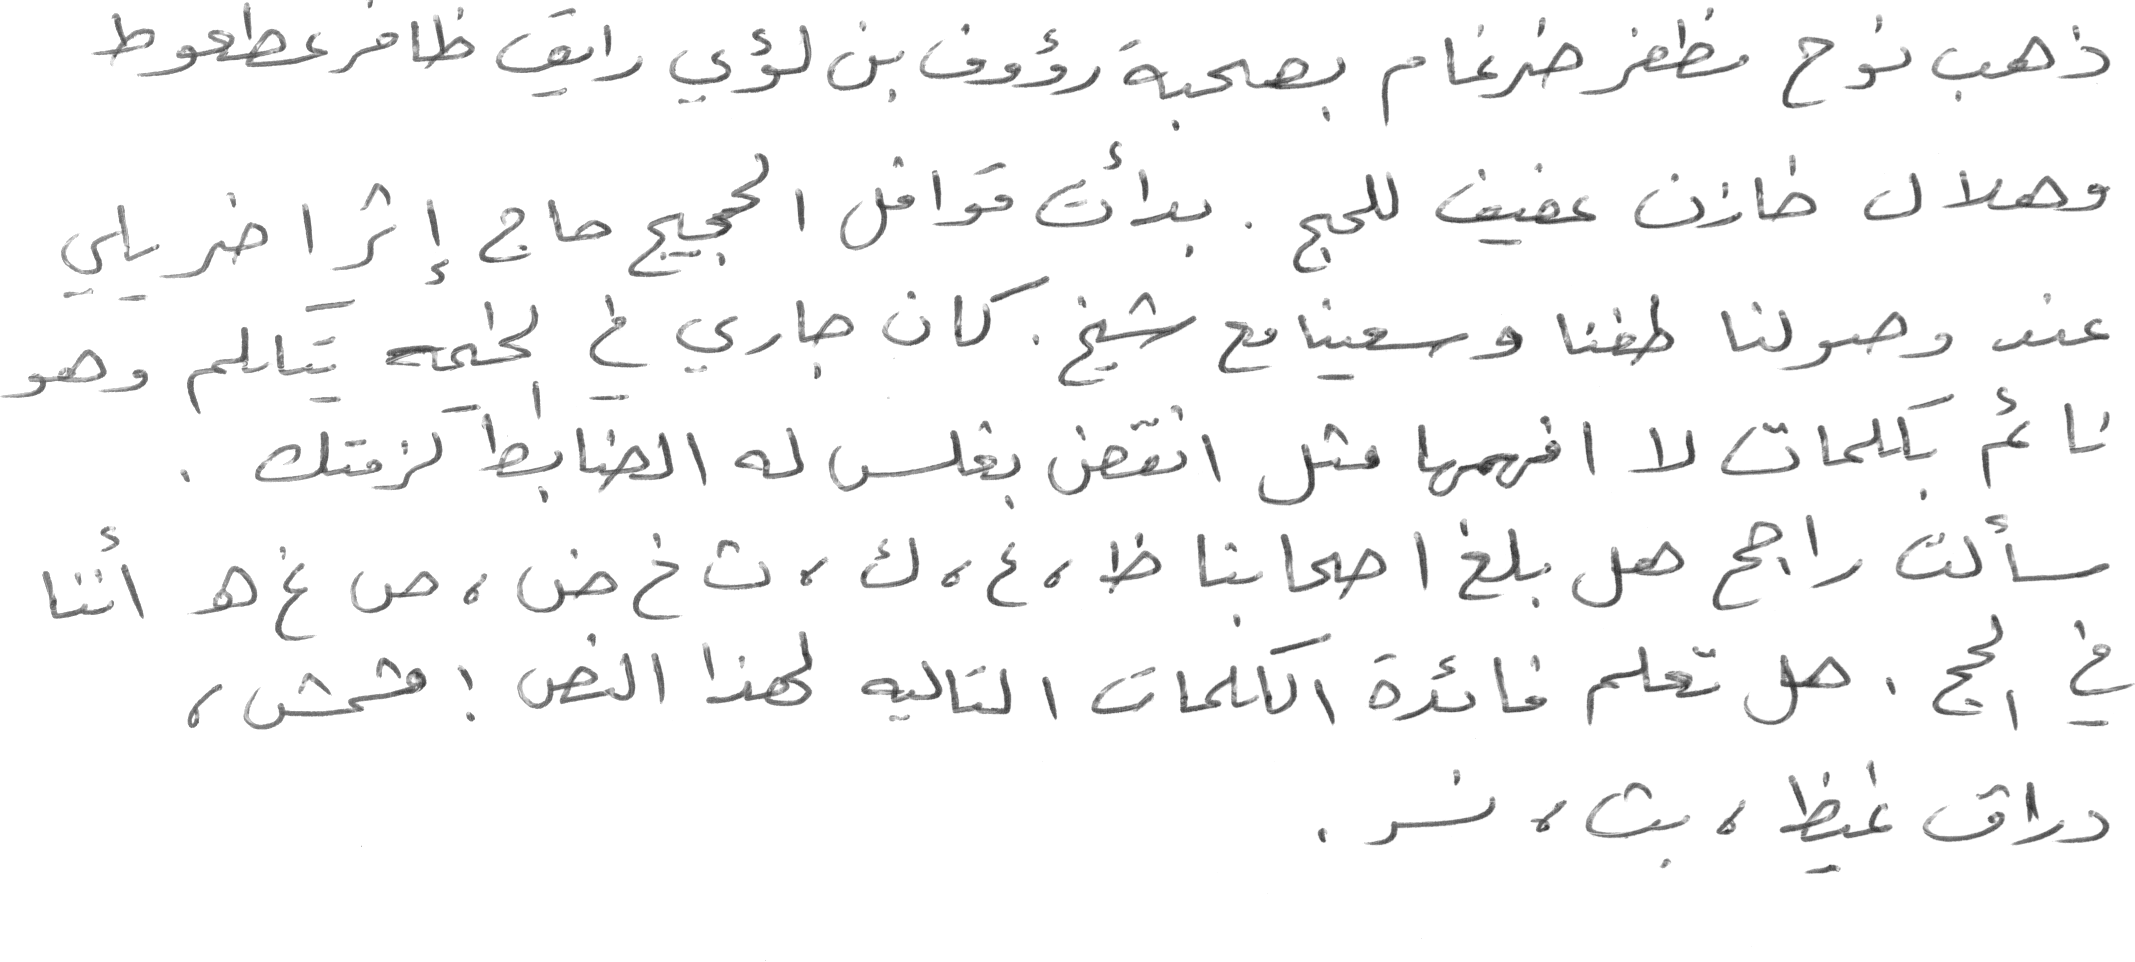 ذهب نوح مظفر ضرغام بصحبة رؤوف بن لؤي رايق ظافر عطعوط
وهلال خازن عفيف للحج . بدأت قوافل الحجيج حاج إثر اخر يلي
عند وصولنا طفنا وسعينا مع شيخ . كان جاري في الخيمه يتكلم وهو
نائم بكلمات لا افهمها مثل انقض بغلس له الضابط كزمتك .
سألت راجح هل بلغ اصحابنا ظ ، غ ، ك ، ث خ ض ، ص غ ه أننا
في الحج . هل تعلم فائدة الكلمات التاليه لهذا النص : مشمش ،
دراق غيظ ، بث ، نسر .